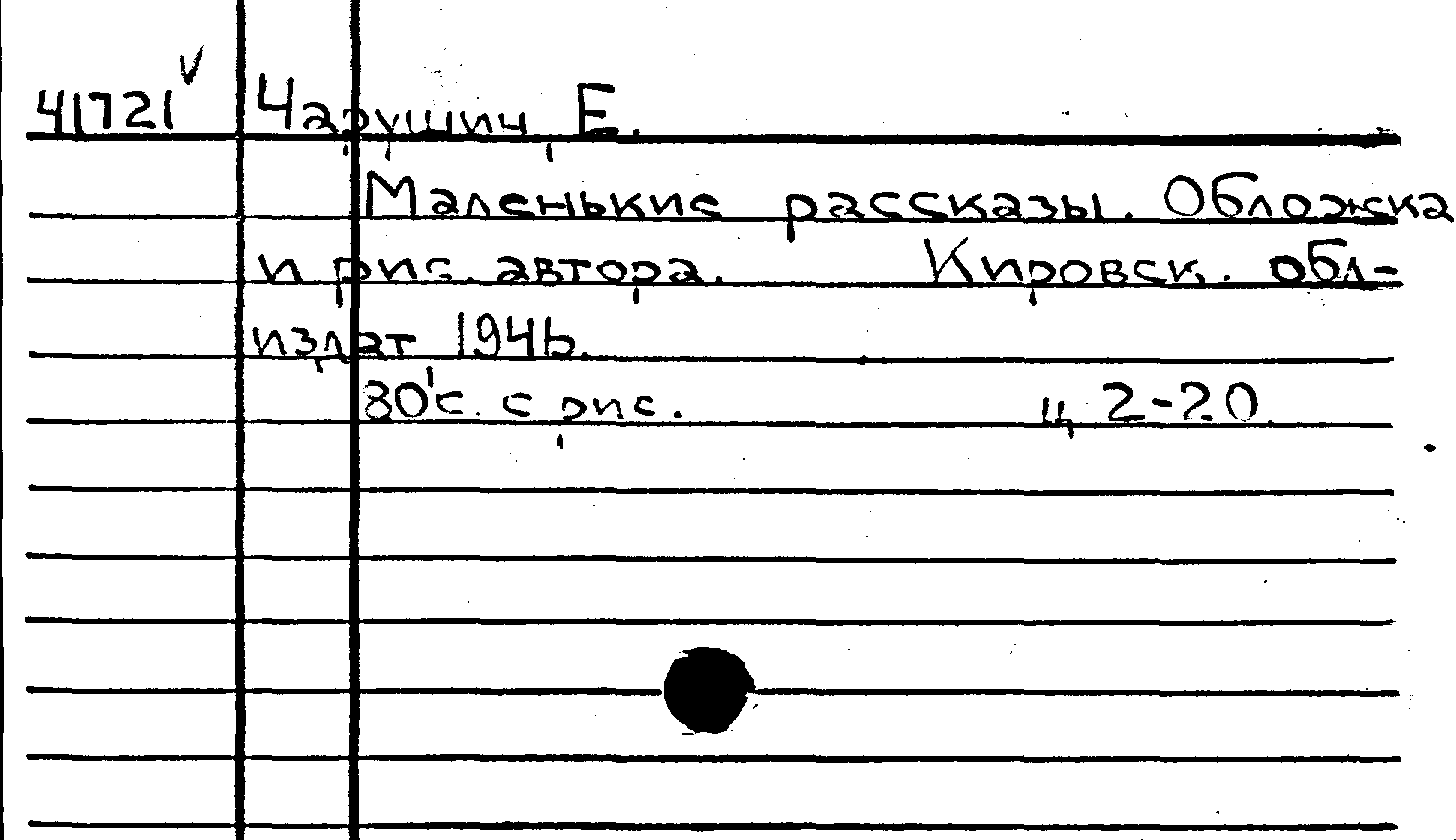 41721 v Чарушин, Е.
Маленькие рассказы. Обложка
и рис. автора. Кировск. обл-
издат 1946.
80 с. с рис. ц 2-20.